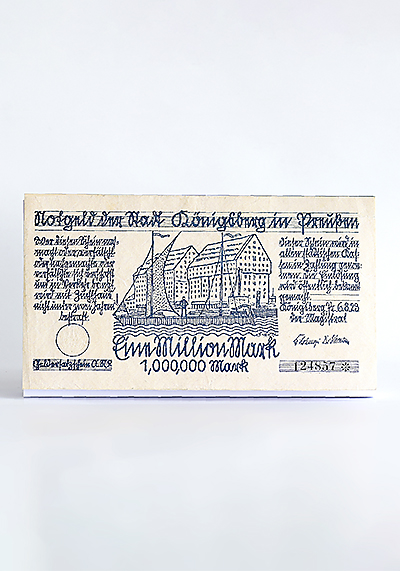 Notgeld der Stadt Königsberg in Preußen
Wer diesen Schein nach-
macht oder verfälscht
oder nachgemachte oder
verfälschte sich verschafft
und in Verkehr bringt
wird mit Zuchthaus
nicht unter zwei Jahren
bestraft
Dieser Schein wird in
allen städtischen Kas-
sen in Zahlung genom-
men. Der
wird öffentlich bekannt
gemacht.
Königsberg Pr. 6.8.23
der Magistrat
Eine Million Mark
1,000,000 Mark
124857 *